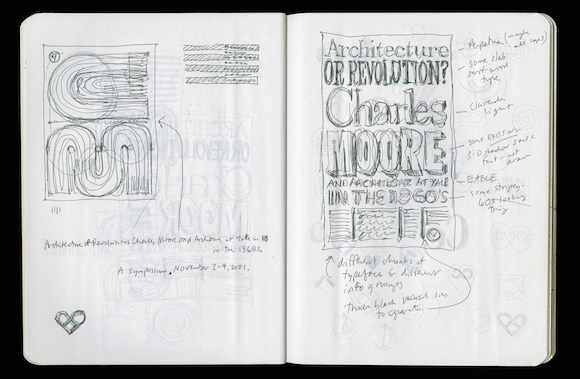 Architecture & Revolution: Charles Moore and Architecture at Yale in
in the 1960s.
A Symposium, November 2-4, 2001.
Architecture
OR REVOLUTION?
Charles
MOORE
AND ARCHITECTURE AT YALE
IN THE 1960'S
Perpetua (maybe
all caps)
some slab
serif wood
type
Clarendon
light
some EXISTING
3-D shadow
not
drawn
EAGLE
some stripey
60s looking
thing
different chunks of
typefaces for different
info groups
thick black vertical lines
to separate.